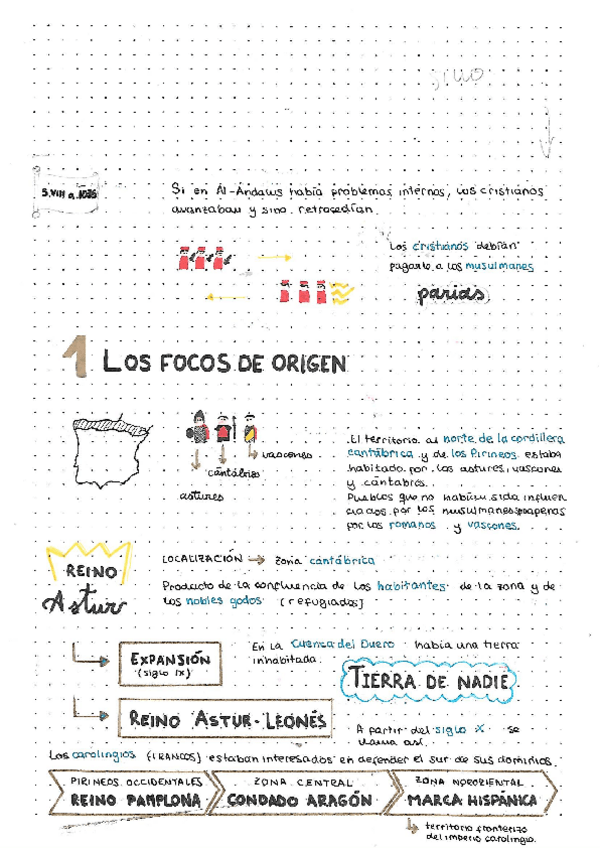 sino
S.VIII a 1035
Si en Al-Andalus había problemas internos, los cristianos
avanzaban y sino retrocedían.
Los cristianos debían
pagarlo a los musulmanes
parias
1 LOS FOCOS DE ORIGEN
vascones
cántabros
astures
El territorio al norte de la cordillera
cantábrica y de los Pirineos estaba
habitado por los astures, vascones
y cántabros.
Pueblos que no habían sido influen
ciados por los musulmanes apenas
por los romanos y vascones.
REINO
Astur
LOCALIZACIÓN → zona cantábrica
Producto de la confluencia de los habitantes de la zona y de
los nobles godos (refugiados)
EXPANSIÓN
(siglo IX)
En la Cuenca del Duero había una tierra
inhabitada.
TIERRA DE NADIE
REINO ASTUR-LEONÉS
A partir del siglo X se
llama así.
Los carolingios (FRANCOS) estaban interesados en defender el sur de sus dominios.
PIRINEOS OCCIDENTALES
REINO PAMPLONA
ZONA CENTRAL
CONDADO ARAGÓN
ZONA NORORIENTAL
MARCA HISPÁNICA
territorio fronterizo
del imperio carolingio.